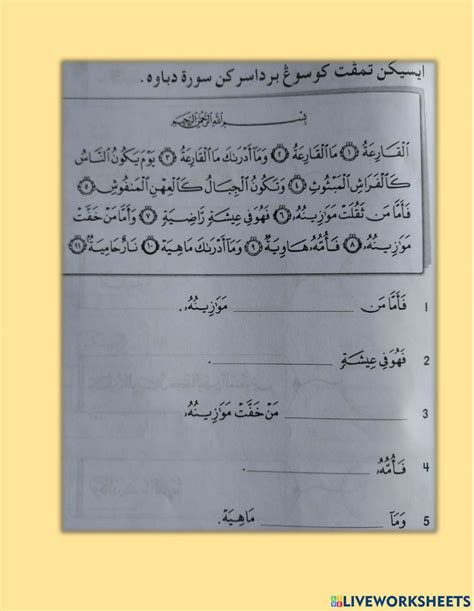 ايسيكن تمڤت كوسوڠ برداسركن سورة دباوه.
بِسْمِ اللَّهِ الرَّحْمَٰنِ الرَّحِيمِ
الْقَارِعَةُ ١ مَا الْقَارِعَةُ ٢ وَمَا أَدْرَىٰكَ مَا الْقَارِعَةُ ٣ يَوْمَ يَكُونُ النَّاسُ
كَالْفَرَاشِ الْمَبْثُوثِ ٤ وَتَكُونُ الْجِبَالُ كَالْعِهْنِ الْمَنفُوشِ ٥
فَأَمَّا مَن ثَقُلَتْ مَوَازِينُهُ ٦ فَهُوَ فِي عِيشَةٍ رَّاضِيَةٍ ٧ وَأَمَّا مَنْ خَفَّتْ
مَوَازِينُهُ ٨ فَأُمُّهُ هَاوِيَةٌ ٩ وَمَا أَدْرَىٰكَ مَاهِيَهْ ١٠ نَارٌ حَامِيَةٌ ١١
1 فَأَمَّا مَن ____________ مَوَازِينُهُ.
2 فَهُوَ فِي عِيشَةٍ ____________.
3 ____________ مَنْ خَفَّتْ مَوَازِينُهُ
4 فَأُمُّهُ ____________.
5 وَمَا ____________ مَاهِيَهْ.
LIVEWORKSHEETS